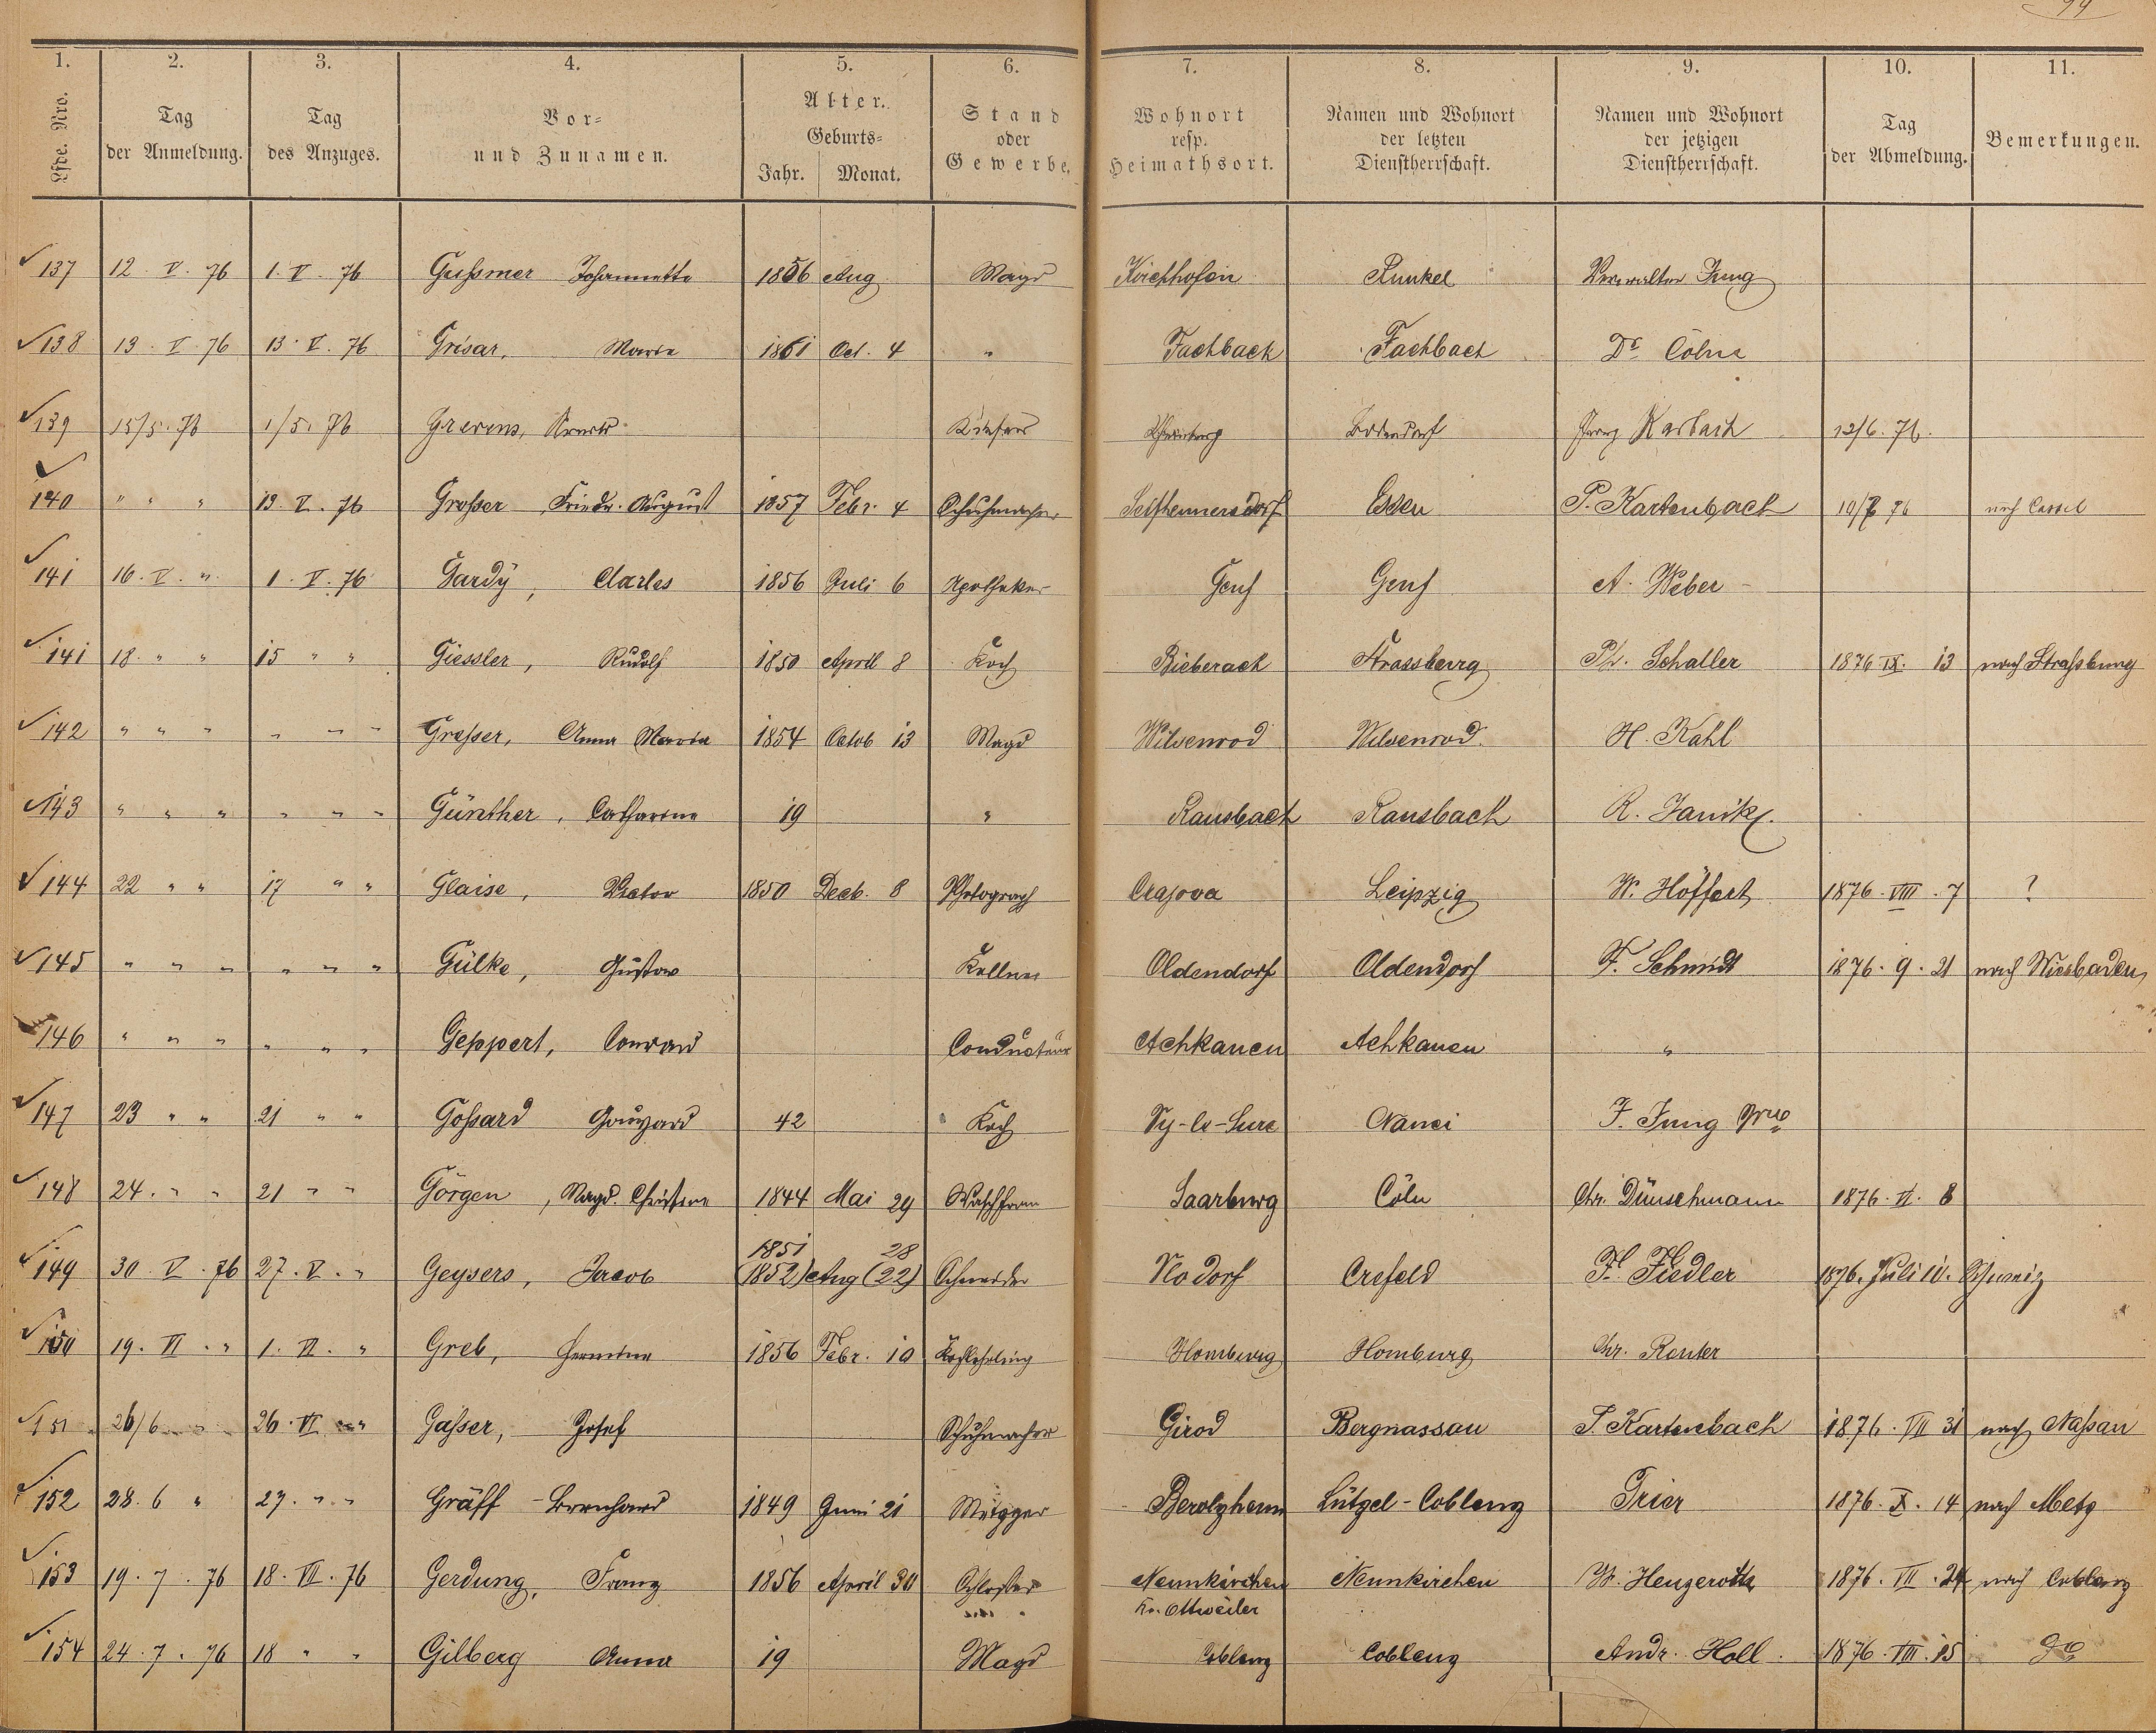 99
1. 2. 3. 4. 5. 6. 7. 8. 9. 10. 11.
Lfde. Nro. | Tag der Anmeldung. | Tag des Anzuges. | Vor= und Zunamen. | Alter. Geburts= Jahr. Monat. | Stand oder Gewerbe. | Wohnort resp. Heimathsort. | Namen und Wohnort der letzten Dienstherrschaft. | Namen und Wohnort der jetzigen Dienstherrschaft. | Tag der Abmeldung. | Bemerkungen.
137 12. V. 76 1. V. 76 Johannette 1856 Aug Magd Kirchhofen Runkel Verwalter Jung
138 13. V. 76 13. V. 76 Grisar, Maria 1861 Oct. 4 " Fachbach Fachbach Dr. Cölne
139 15/5. 76 1/5. 76 Grevens, Küfer Bodendorf Franz Karbach 12/6. 76.
140 " " " 13. V. 76 Großer Friedr. August 1857 Febr. 4 Schuhmacher Seifhennersdorf Essen P. Kartenbach 10/7 76 nach Cassel
141 16. V. " 1. V. 76 Gardÿ, Charles 1856 Juli 6 Apotheker Genf Genf A. Weber
141 18. " " 15 " " Giessler, Rudolf 1850 April 8 Koch Bieberach Strassburg Ph. Schaller 1876 IX. 13 nach Straßburg
142 " " " " " " Greßer, Anna Maria 1854 Octob 13 Magd Wilsenrod Wilsenrod. H. Kahl
143 " " " " " " Günther, Catharina 19 " Ransbach Ransbach R. Janik
144 22 " " 17 " " Glaise, Victor 1850 Decb. 8 Photograph Crajova Leipzig W. Höffert 1876. VIII. 7 ?
145 " " " " " " Gülke, Gustav Kellner Oldendorf Oldendorf F. Schmidt 1876. 9. 21 nach Wiesbaden
146 " " " " " " Geppert, Conrad Conducteur Achkanen Achkanen "
147 23 " " 21 " " Goßard 42 Koch Vy-le-Lure Nanci F. Jung Wwe
148 24. " " 21 " " Görgen, Magd. Christina 1844 Mai 29 Waschfrau Saarburg Cöln Chr. Dünschmann 1876. VI. 8
149 30. V. 76 27. V. " Geysers, Jacob 1851 (1852) Aug 28 (22) Schneider Crefeld Fr. Fiedler 1876. Juli 10. Schweiz
150 19. VI. " 1. VI. " Greb, Hermine 1856 Febr. 10 Kochlehrling Homburg Homburg Chr. Reuter
151 26/6 " 26. VI " Gaßer, Josef Schuhmacher Girod Bergnassau P. Kartenbach 1876. VII 31 nach Naßau
152 28. 6 " 27. " " Gräff Bernhard 1849 Juni 21 Metzger Berolzheim Lützel-Coblenz Trier 1876. X. 14 nach Metz
153 19. 7. 76 18. VII. 76 Gerdung, Franz 1856 April 30 Schlosser Neunkirchen Kr. Ottweiler Neunkirchen W. Henzeroth 1876. VII. 24 nach Coblenz
154 24. 7. 76 18 " " Gilberg Anna 19 Magd Coblenz Coblenz Andr. Holl. 1876. VIII. 15 do